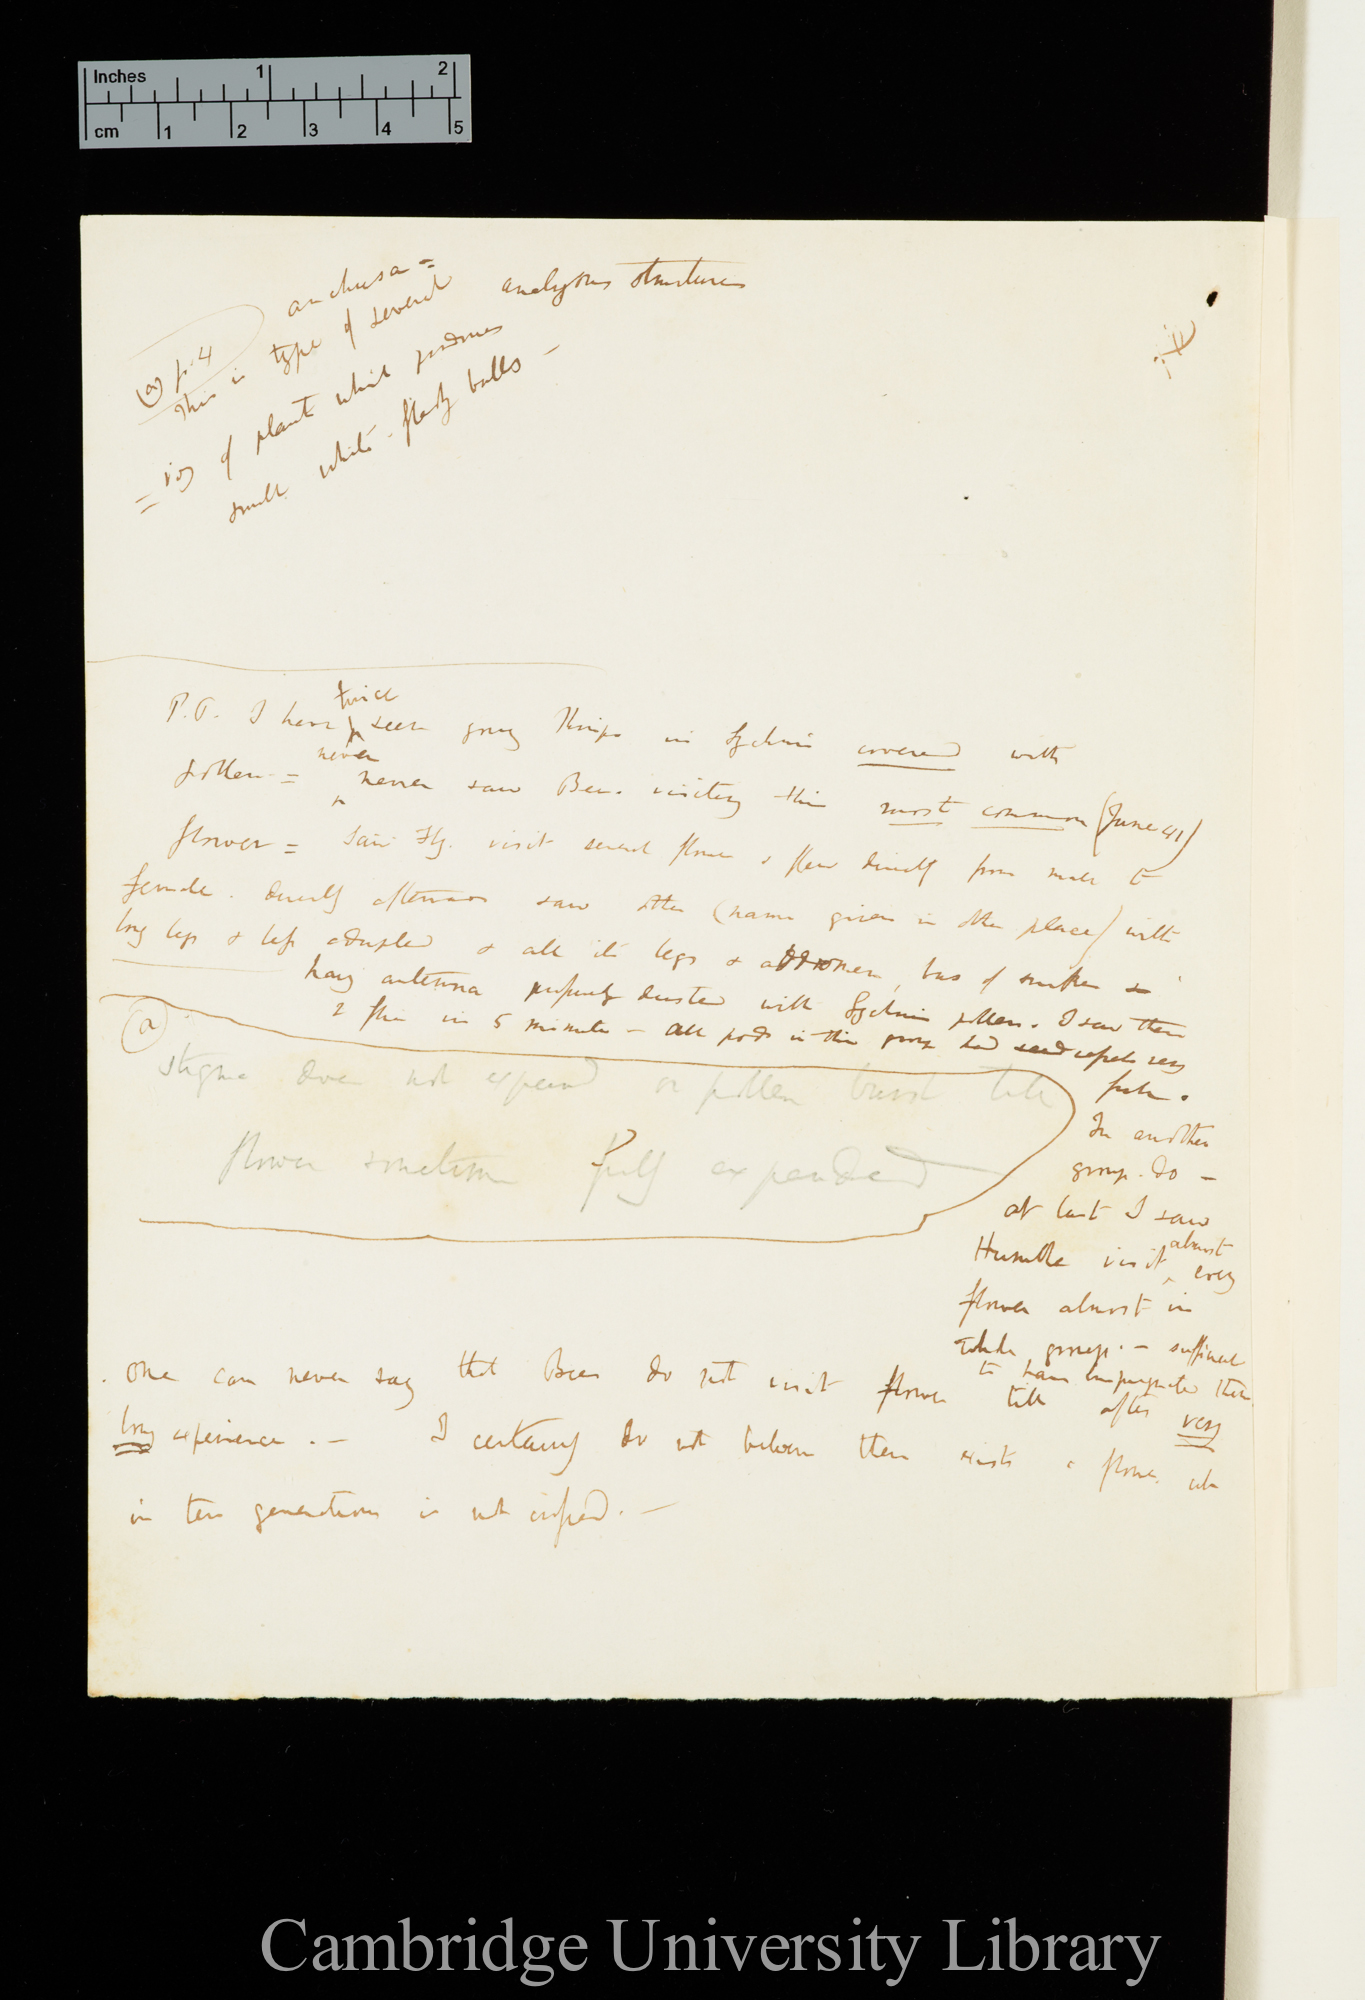 Inches 1 2
cm 1 2 3 4 5
(a) p. 4
anchusa =
This is type of several analogous structures
= of plant which produces
small white fleshy balls —
P.S. I have twice seen Thrips in Lychnis covered with
pollen = never never saw Bees visiting this most common (June 41)
flower = Saw Fly visit several flowers & flew directly from male to
female. directly afterwards saw other (name given in other place) with
long legs & adapted & all its legs & abdomen, base of &
hairy antenna dusted with Lychnis pollen. I saw these
2 flies in 5 minutes — all pods in this group had seed very
In another
group. do —
at last I saw
Humble visit almost every
flower almost in
whole group. — sufficient
to have impregnated them
(a)
Stigma does not expand or pollen burst till
flower sometime fully expanded
One can never say that Bees do not visit flower till after very
long experience. — I certainly do not believe there exists a flower wh
in ten generations is not crossed. —
Cambridge University Library